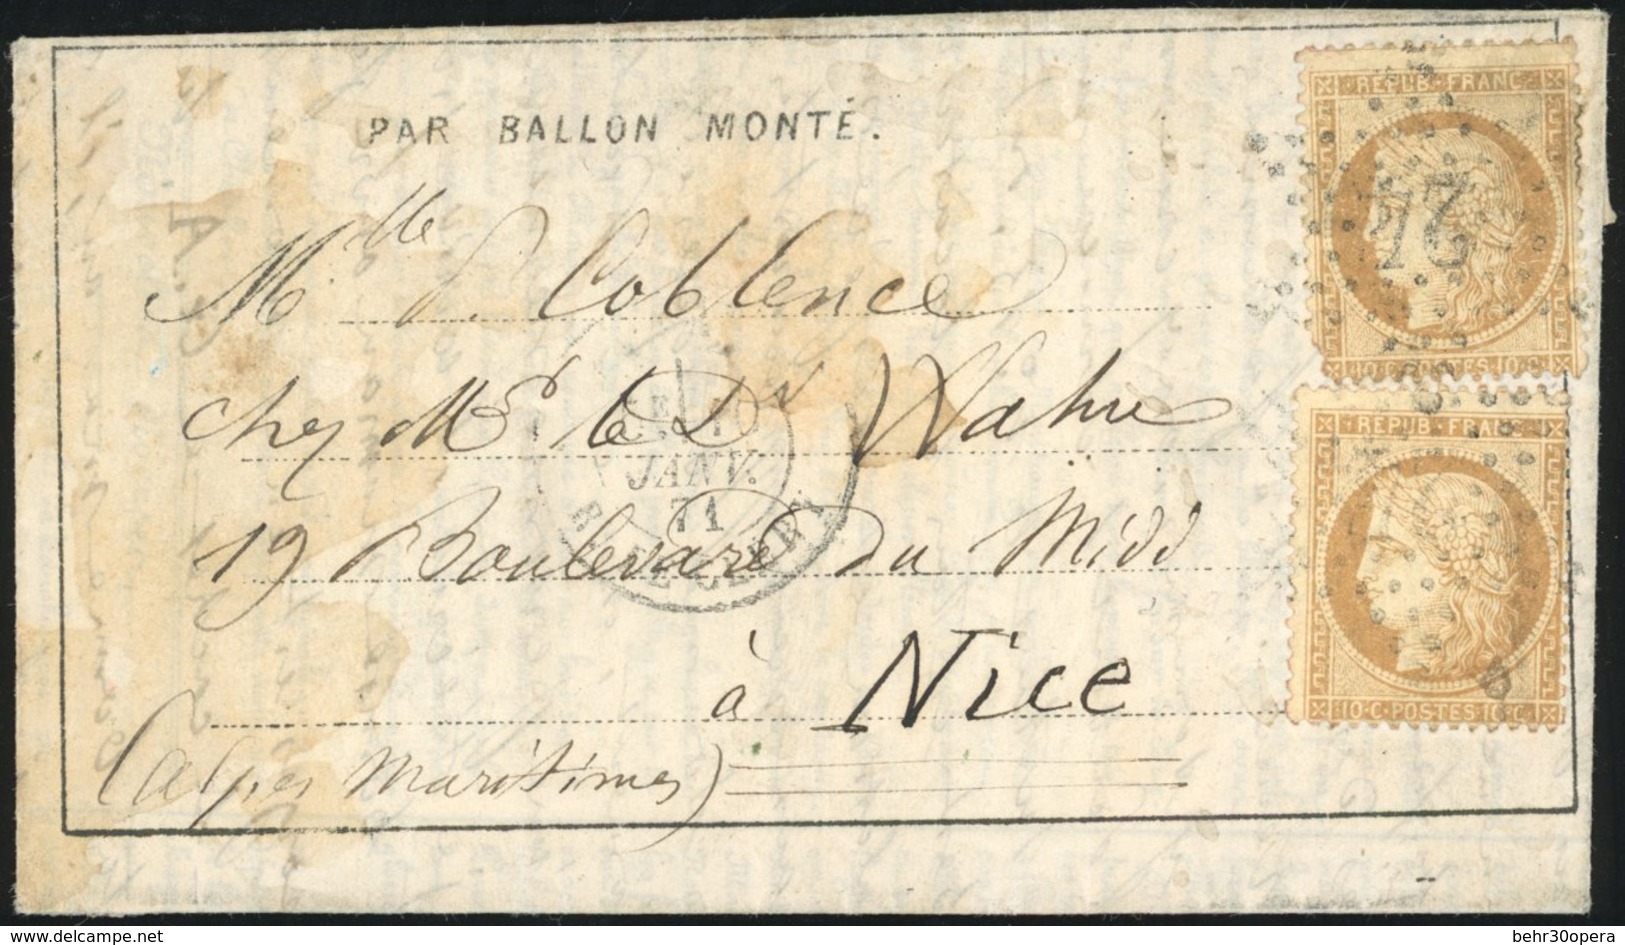 PAR BALLON MONTÉ.
Mlle P. Coblence
chez Mr le Dr Wahu
19 Boulevard du Midi
à Nice
(alpes Maritimes)
REPUB. FRANC.
24
10.C. POSTES 10.C.
REPUB. FRANC.
10.C. POSTES 10.C.
JANV.
71
delcampe.net
behr30opera